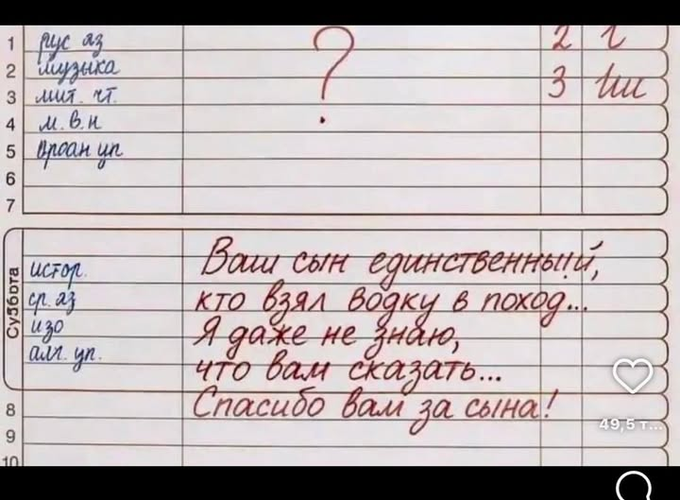 1 рус яз 2
2 музыка
3 мит. чт. 3
?
4 м.в.н
5 ироан ип
6
7
Суббота
истор.
ср. яз
изо
алг. уп.
Ваш сын единственныий,
кто взял водку в поход...
Я даже не знаю,
что вам сказать...
Спасибо вам за сына!
8
9
10
49,5 т...